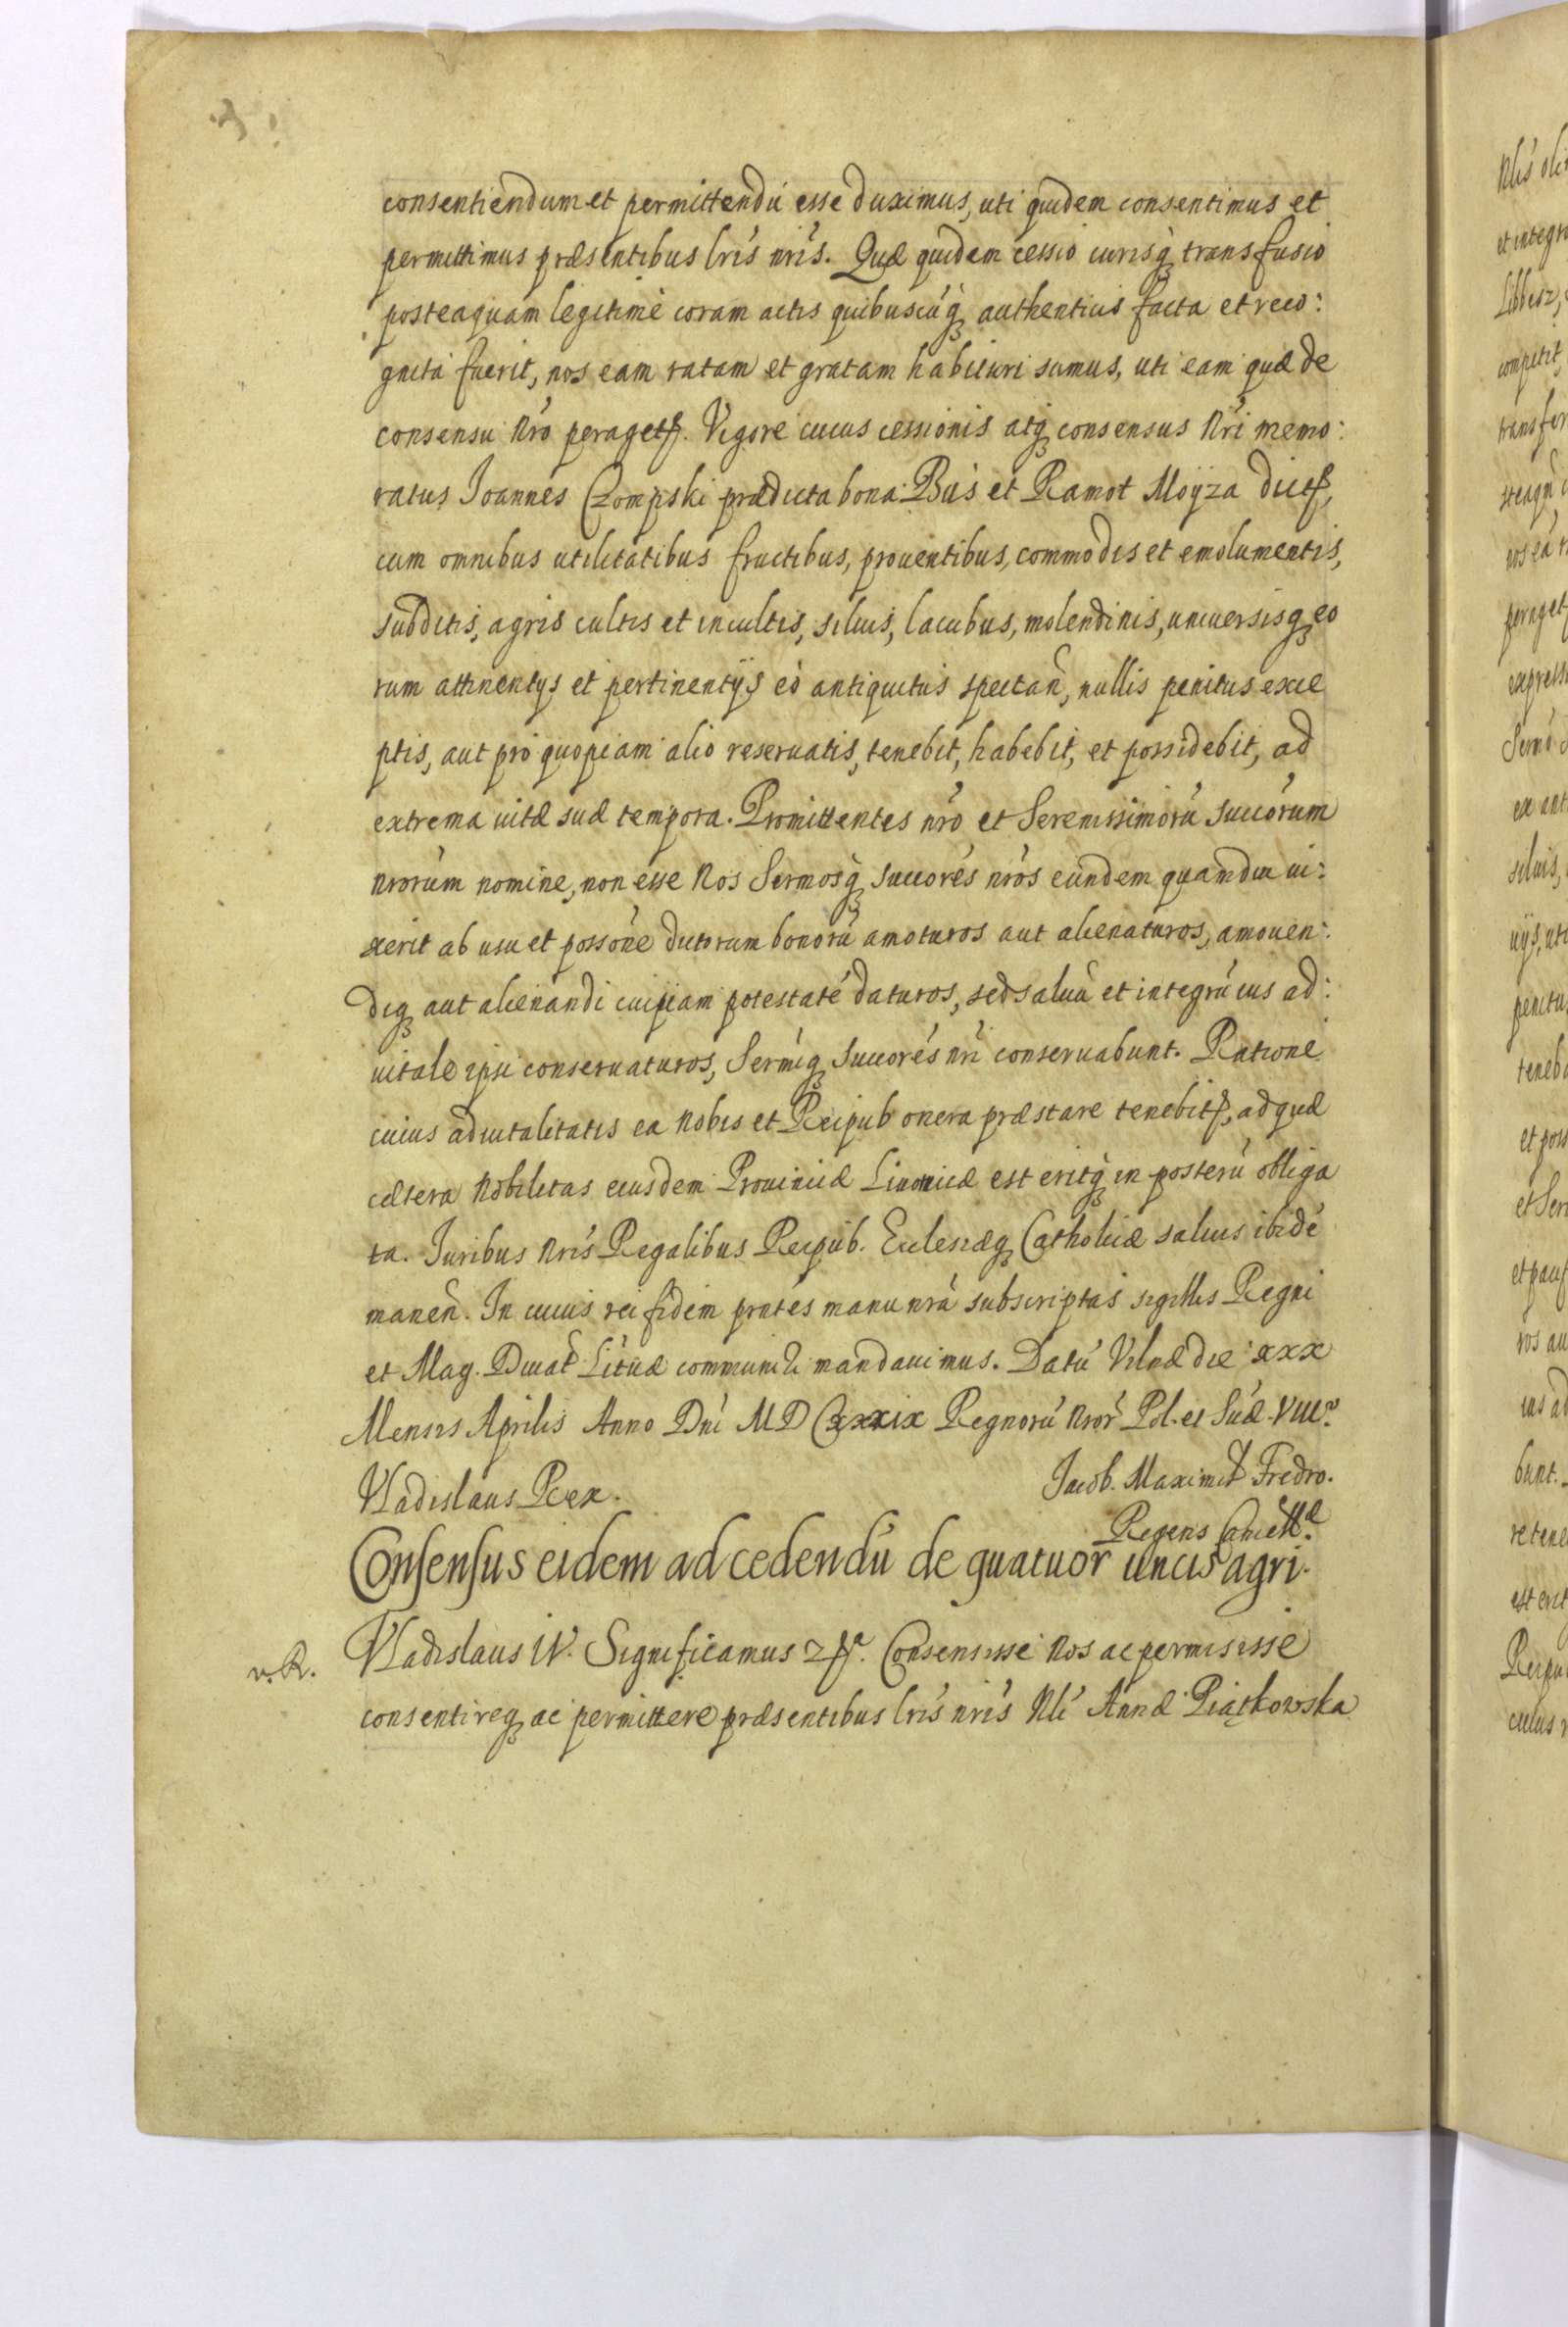 consentiendum et permittendú esse duximus, uti quidem consentimus et
permittimus præsentibus lrís nrís. Quæ quidem cessio iurisq́ transfusio
posteaquam legitimè coram actis quibuscúq́ authenticis facta et reco:
gnita fuerit, nos eam ratam et gratam habituri sumus, uti eam quæ de
consensu Nró peragetr. Vigore cuius cessionis atq consensus Nri memo:
ratus Joannes Czompski prædicta bona Bus et Ramot Moÿza dict,
cum omnibus utilitatibus fructibus, prouentibus, commodis et emolumentis,
subditis, agris cultis et incultis, siluis, lacubus, molendinis, uniuersisq eo
rum attinentÿs et pertinentÿs eò antiquitus spectañ, nullis penitus exce
ptis, aut pro quopiam alio reseruatis, tenebit, habebit, et possidebit, ad
extrema uitæ suæ tempora. Promittentes nró et Serenissimorú succórum
nrórum nomine, non esse Nos Sermosq́ succorés nrós eundem quamdiu ui:
xerit ab usu et possóne dictorum bonorú amoturos aut alienaturos, amouen:
diq aut alienandi cuipiam potestaté daturos, sed saluú et integrú ius ad:
uitale ipsi conseruaturos, Sermíq succorés nrí conseruabunt. Ratione
cuius aduitalitatis ea Nobis et Reipub onera præstare tenebitr, ad quæ
cætera Nobilitas eiusdem Prouinciæ Liuoniæ est eritq́ in posterú obliga
ta. Juribus nrís Regalibus Reipub. Ecclesiæq Catholicæ saluis ibidé
maneñ. In cuius rei fidem prntés manu nrá subscriptas sigillis Regni
et Mag. Ducat Lituæ communiri mandauimus. Datú Vilnæ die xxx
Mensis Aprilis Anno Dni MDCxxxix Regnorú Nror Pol. et Suæ. VIII°.
Vladislaus Rex.
Jacob. Maximil Fredro.
Regens Cancellæ
Consensus eidem ad cedendú de quatuor uncis agri.
v. R. Vladislaus IV. Significamus &. Consensisse Nos ac permisisse
consentireq ac permittere præsentibus lrís nrís Nlí Annæ Piątkowska